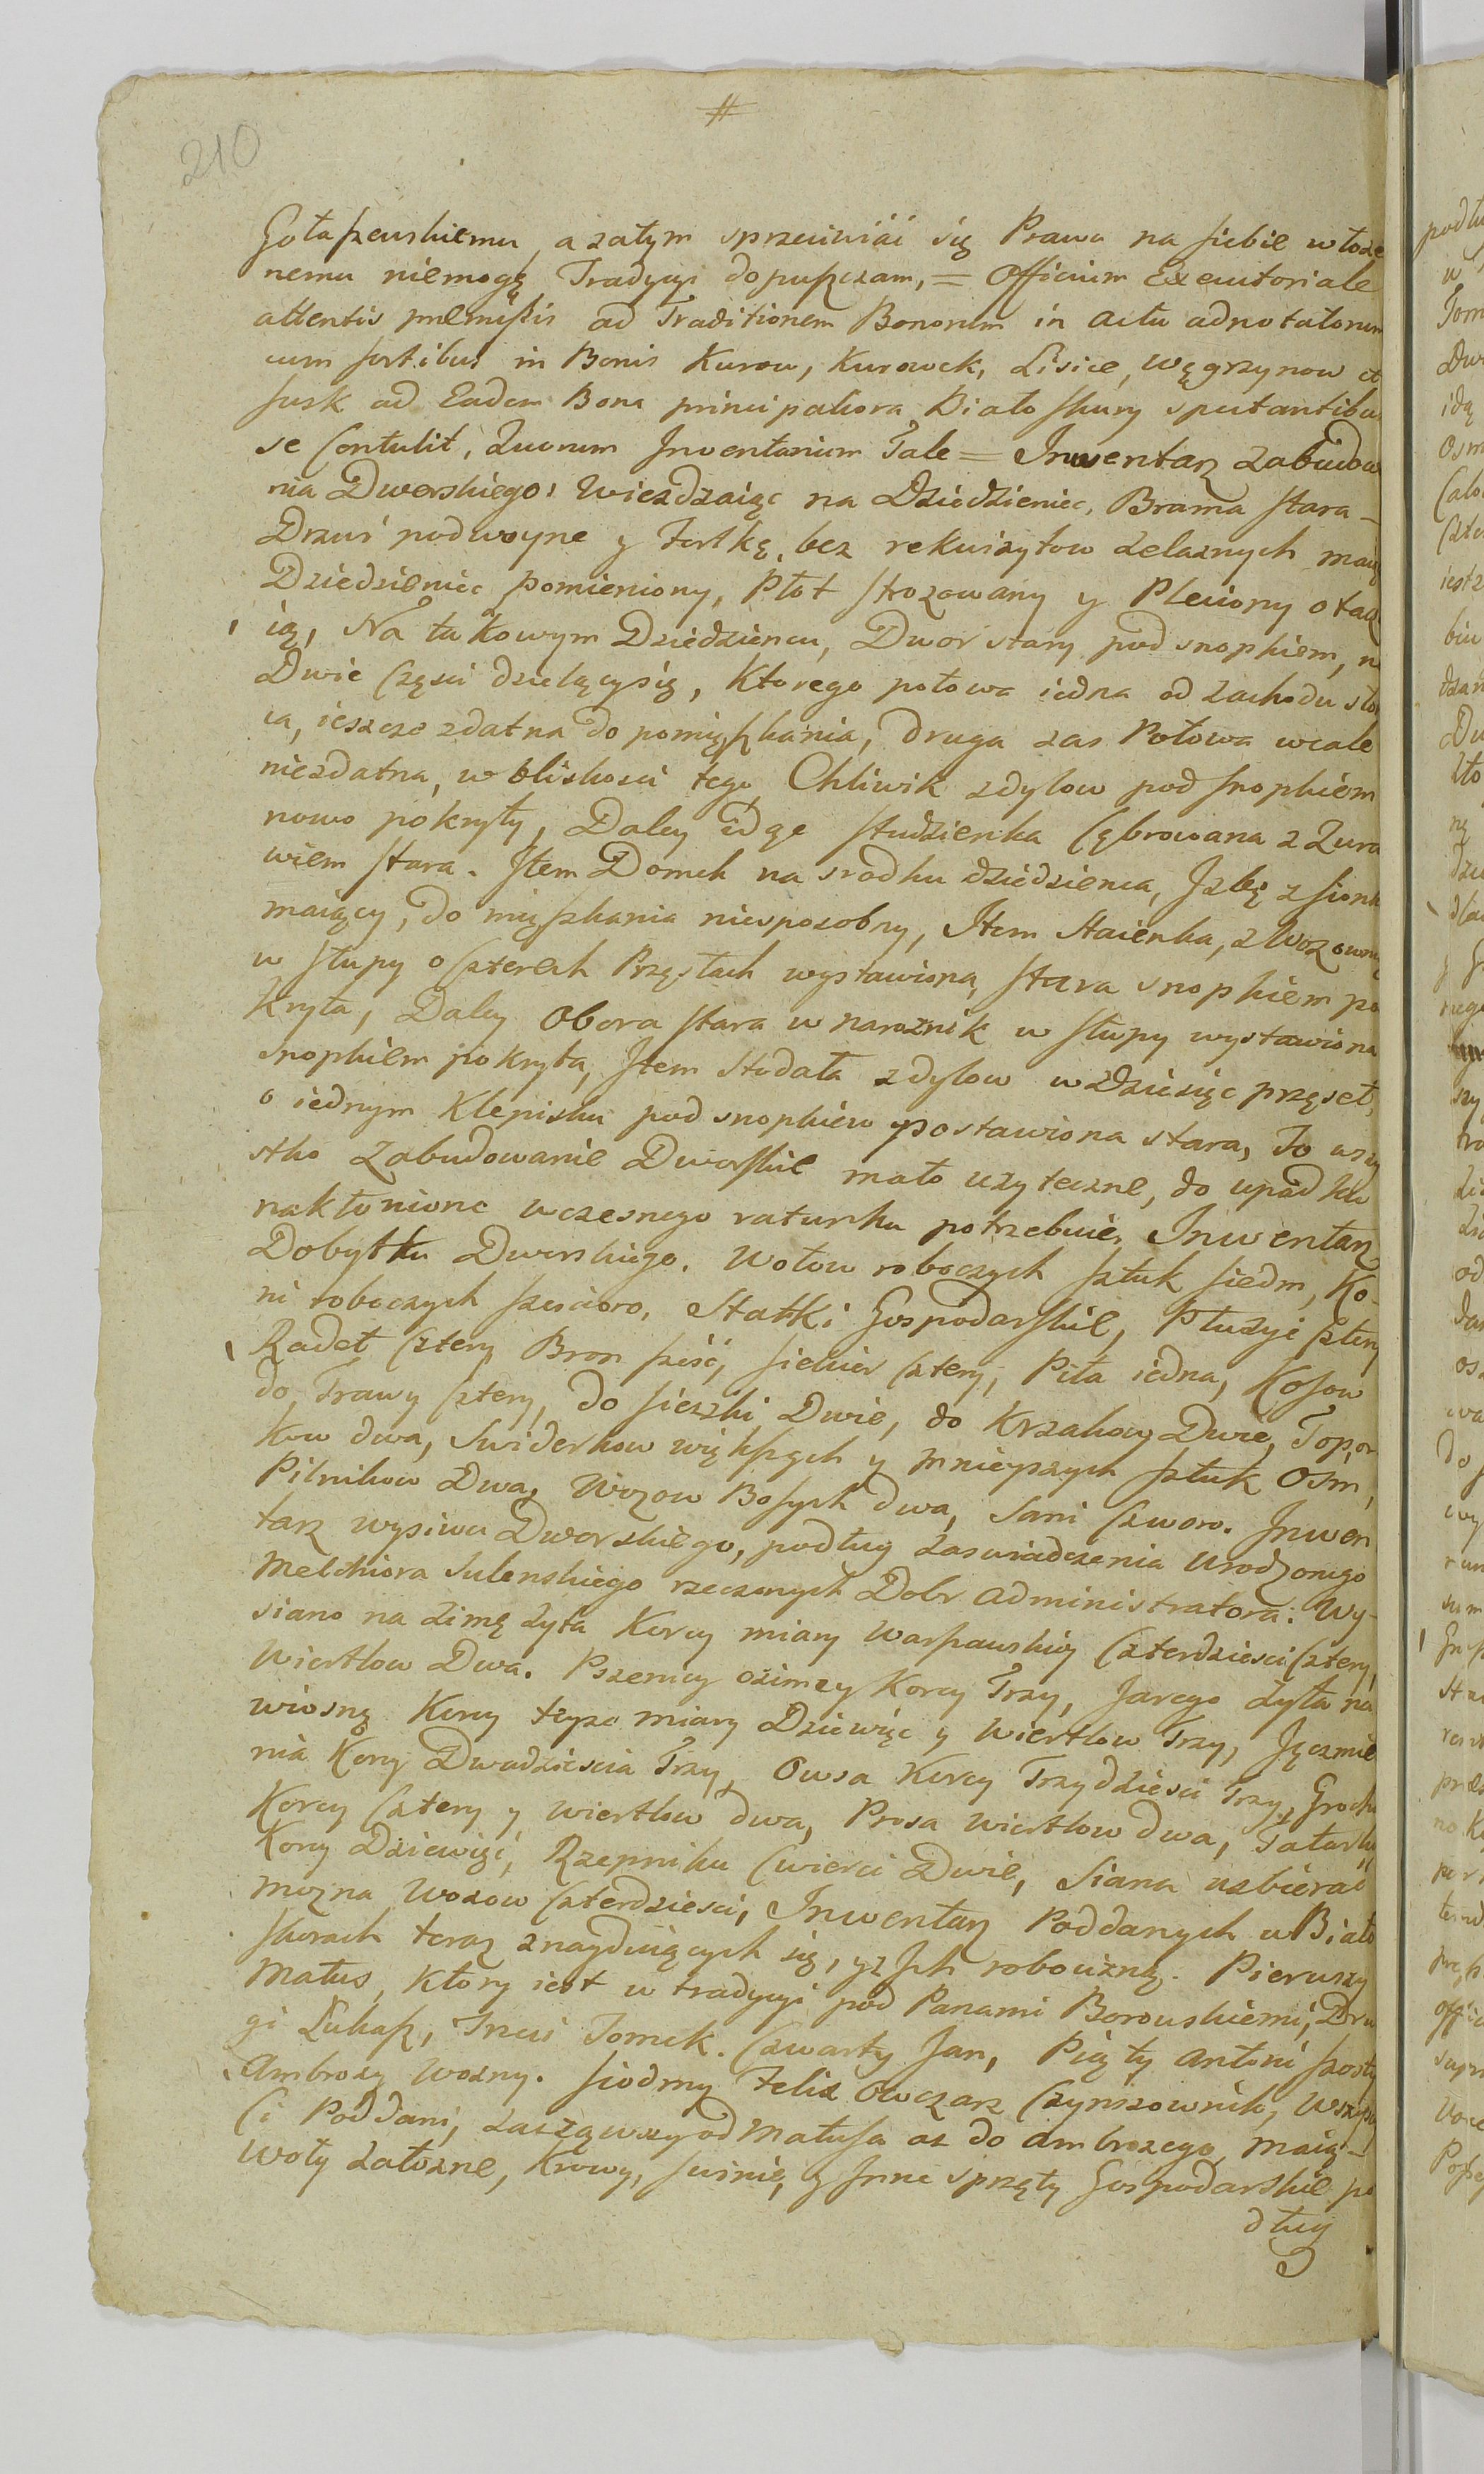 #
210
Gołaszewskiemu, a zatym sprzeciwiać się Prawu na siebie włożo
nemu niemogę Tradycyi dopuszczam, = Officium Executoriale
attentis præmissis ad Traditionem Bonorum in actu adnotatorum
cum sortibus in Bonis Kurow, Kurowek, Lisice, Węgrzynow et
Susk ad Eadem Bona principaliora Białoskury spectantibus
se Contulit, Quorum Inventarium Tale = Inwentarz Zabudowa
nia Dworskiego: Wiezdzaiąc na Dziedzieniec, Brama stara
Drzwi podwoyne y Fortkę, bez rekwizytow zelaznych maią
Dziedzieniec pomieniony, Płot strozowany y Pleciony otacz
ią, Na takowym Dziedziencu, Dwor stary pod snopkiem, w
Dwie Części dzielącysię, Ktorego połowa iedna od zachodu słoń
ca, ieszcze zdatna do pomięszkania, druga zas Połowa wcale
niezdatna, w bliskosci tego Chliwik zdylow pod snopkiem
nowo pokryty, Daley idąc Studzienka Cębrowana z Zura
wiem stara. Item Domek na srodku dziedzienca, Izbę z sionk
maiący, do mięszkania niesposobny, Item Staienka, z Wozownią
w słupy o Czterech Przęsłach wystawiona, stara snopkiem po
kryta, Daley Obora stara w naroznik w słupy wystawiona
snopkiem pokryta, Item Stodoła z dylow w Dziesięc przęseł,
o iednym Klepisku pod snopkiem postawiona stara, To wszy
stko Zabudowanie Dworskie mało uzyteczne, do upadku
nakłonione wczesnego ratunku potrzebuie, Inwentarz
Dobytku Dworskiego. Wołow roboczych sztuk siedm, Ko-
ni roboczych szescioro, Statki Gospodarskie, Pługi Cztery
Radeł Cztery Bron szesć, siekier Cztery, Piła iedna, Kosow
do Trawy Cztery, do sieczki Dwie, do Krzakow Dwie, Topor
kow dwa, Swiderkow większych y mnieyszych sztuk Osm,
Pilnikow Dwa, Wozow Bosych dwa, Sani Czworo. Inwen
tarz wysiewu Dworskiego, podług zaswiadczenia Urodzonego
Melchiora Sulenskiego rzeczonych Dobr administratora: Wy-
siano na zimę żyta Korcy miary Warszawskiey Czterdziesci Cztery
Wiertlow Dwa. Pszenicy ozimey Korcy Trzy, Jarego żyta na
wiosnę Korcy teyze miary Dziewięc y Wiertlow Trzy, Jęczmie
nia Korcy Dwadziescia Trzy, Owsa Korcy Trzydziesci Trzy, Grochu
Korcy Cztery y Wiertlow dwa, Prosa Wiertlow dwa, Tatarki
Korcy Dziewięć, Rzepniku Cwierci Dwie, Siana uzbierać
mozna Wozow Czterdziesci, Inwentarz Poddanych w Biało
skurach teraz znayduiących się, y z Ich robocizną. Pierwszy
Matus, Ktory iest w tradycyi pod Panami Borowskiemi, Dru
gi Łukasz, Trzeci Tomek. Czwarty Jan, Piąty Antoni szosty
Ambrozy Wozny. siodmy Felix Owczarz Czynszownik, Wszyscy
Ci Poddani, zacząwszy od Matusa az do Ambrozego, maią
Woły załozne, Krowy, swinie, y Inne sprzęty Gospodarskie po
dług